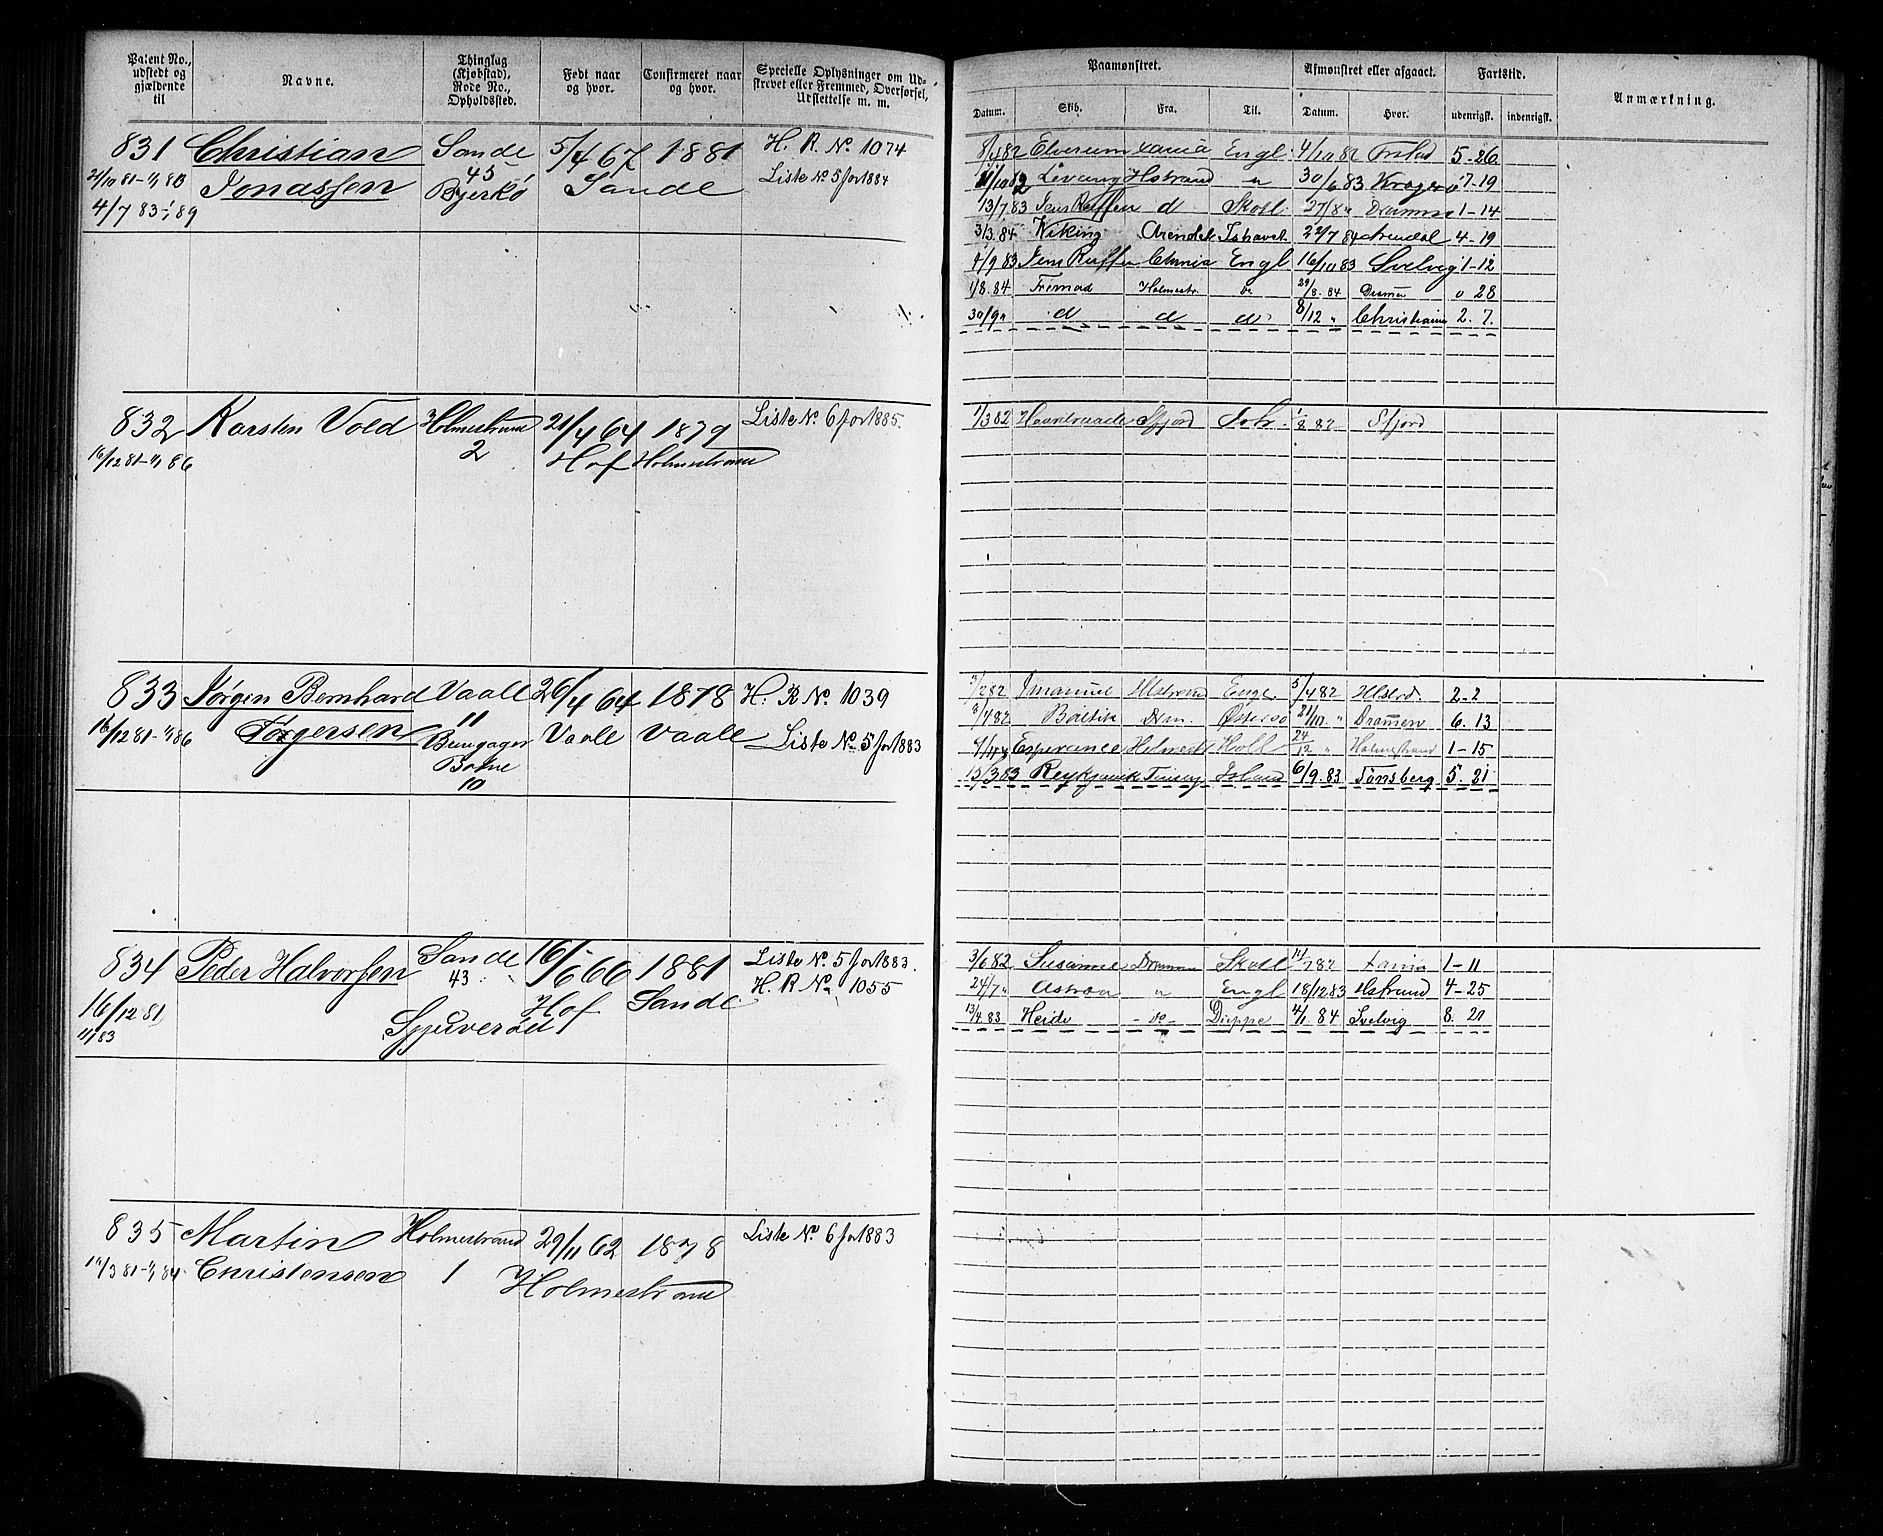 Patent No., udstedt og gjældende til
Navne.
Thinglag (Kjøbstad), Rode No., Opholdssted.
Født naar og hvor.
Confirmeret naar og hvor.
Specielle Oplysninger om Udskrevet eller Fremmed, Overførsel, Udslettelse m. m.
Paamønstret.
Afmønstret eller afgaaet.
Fartstid.
Anmærkning.
Datum. Skib. Fra. Til. Datum. Hvor. udenrigsk. indenrigsk.
831 Christian Sande 5/4 67 1881 H. R. No. 1074
21/10 81 - 1/1 83 Jonassen 45 Sande Liste No 5 for 1884
4/7 83 - 1/1 89 Bjerkø
8/4 82 Elverum Xania Engl 4/10 82 5-26
Levang Hstrand " 30/6 83 Kragerø 7-19
13/7 83 d Skotl. 27/8 " Drammen 1-14
3/3.84 Viking Arendal Ishavet 22/7 84 Arendal 4-19
4/9 83 Chania Engl 16/10 83 Svelvig 1-12
1/8.84 Fremad Holmestr. do 29/8.84 Drammen 0 28
30/9 " d d d 8/12 " Christiania 2.7.
832 Karsten Vold Holmestrand 21/4 64 1879 Liste No 6 for 1885.
16/12 81 - 1/1 86 2 Hof Holmestrand
1/3 82 Sfjord 1/8 82 Sfjord
833 Jørgen Bernhard Vaale 26/4 64 1878 H. R No. 1039
16/12 81 - 1/1 86 Jørgensen 11 Vaale Vaale Liste No 5 for 1883
Botne
10
3/2 82 Imanuel Hlstrand Engl 5/4 82 Hlstrd. 2-2
8/4 82 Baltik Drm. Østersø 21/10 " Drammen 6.13
Esperance Holmestr Holl 24/12 " Holmestrand 1-15
13/3 83 Reykjanik Island 6/9.83 Tønsberg 5.21
834 Peder Halvorsen Sande 16/6 66 1881 Liste No. 5 for 1883.
43 Hof Sande H. R No. 1055
16/12 81
1/1 83
3/6 82 Susanne Drammen Skotl 14/7 82 Xania 1-11
24/7 " Astræa " Engl 18/12 83 Hstrand 4-25
13/4.83 Heide - do - Dieppe 4/1.84 Svelvig 8.21
835 Martin Holmestrand 29/11 62 1878 Liste No. 6 for 1883
Christensen 1 Holmestrand